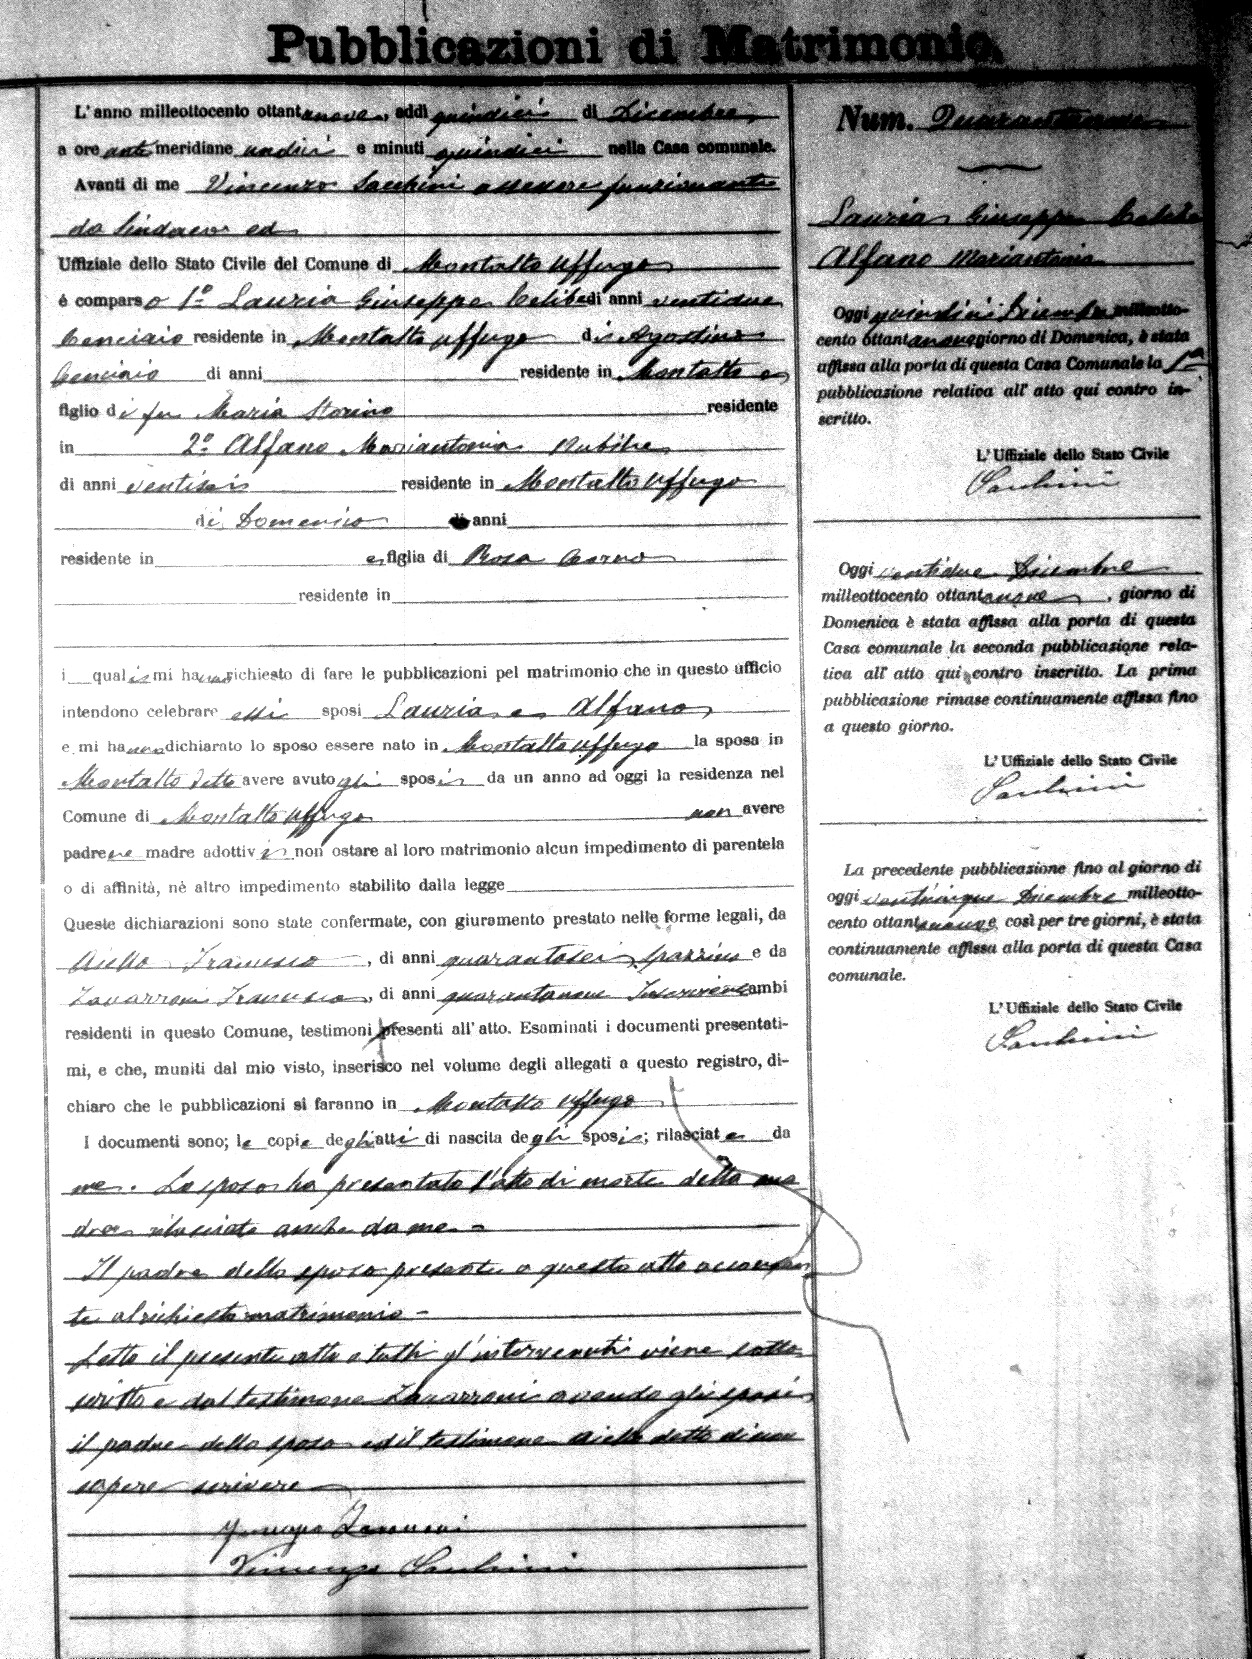 Pubblicazioni di Matrimonio.
L'anno milleottocento ottantanove, addì quindici di Dicembre,
a ore anti meridiane undici e minuti quindici nella Casa comunale.
Avanti di me Vincenzo Sacchini assessore funzionante
da Sindaco ed
Uffiziale dello Stato Civile del Comune di Montalto Uffugo
è comparso 1º Lauria Giuseppe Celibe di anni ventidue
Cenciaio residente in Montalto Uffugo di Agostino
Cenciaio di anni residente in Montalto e
figlio di fu Maria Storino residente
in 2º Alfano Mariantonia Nubile
di anni ventisei residente in Montalto Uffugo
di Domenico di anni
residente in e figlia di Rosa
residente in
i quali mi hanno richiesto di fare le pubblicazioni pel matrimonio che in questo ufficio
intendono celebrare essi sposi Lauria e Alfano
e mi hanno dichiarato lo sposo essere nato in Montalto Uffugo la sposa in
Montalto detto avere avuto gli sposi da un anno ad oggi la residenza nel
Comune di Montalto Uffugo non avere
padre ne madre adottivi non ostare al loro matrimonio alcun impedimento di parentela
o di affinità, nè altro impedimento stabilito dalla legge
Queste dichiarazioni sono state confermate, con giuramento prestato nelle forme legali, da
Aiello Francesco, di anni quarantasei, e da
Zavarroni Francesco, di anni quarantanove ambi
residenti in questo Comune, testimoni presenti all'atto. Esaminati i documenti presentati-
mi, e che, muniti dal mio visto, inserisco nel volume degli allegati a questo registro, di-
chiaro che le pubblicazioni si faranno in Montalto Uffugo
I documenti sono; le copie degli atti di nascita degli sposi; rilasciate da
me. Lo sposo ha presentato l'atto di morte della ma
dre rilasciato anche da me =
Il padre dello sposo presente a questo atto acconsen
te al richiesto matrimonio =
Letto il presente atto a tutti gl'intervenuti viene sotto
scritto e dal testimone Zavarroni avendo gli sposi
il padre dello sposo ed il testimone Aiello detto di non
sapere scrivere
Zavarroni
Vincenzo Sacchini
Num. Quarantanove
Lauria Giuseppe Celibe
Alfano Mariantonia
Oggi quindici Dicembre milleotto-
cento ottantanove giorno di Domenica, è stata
affissa alla porta di questa Casa Comunale la 1ª
pubblicazione relativa all'atto qui contro in-
scritto.
L'Uffiziale dello Stato Civile
Sacchini
Oggi ventidue Dicembre
milleottocento ottantanove, giorno di
Domenica è stata affissa alla porta di questa
Casa comunale la seconda pubblicazione rela-
tiva all'atto qui contro inscritto. La prima
pubblicazione rimase continuamente affissa fino
a questo giorno.
L'Uffiziale dello Stato Civile
Sacchini
La precedente pubblicazione fino al giorno di
oggi venticinque Dicembre milleotto-
cento ottantanove così per tre giorni, è stata
continuamente affissa alla porta di questa Casa
comunale.
L'Uffiziale dello Stato Civile
Sacchini